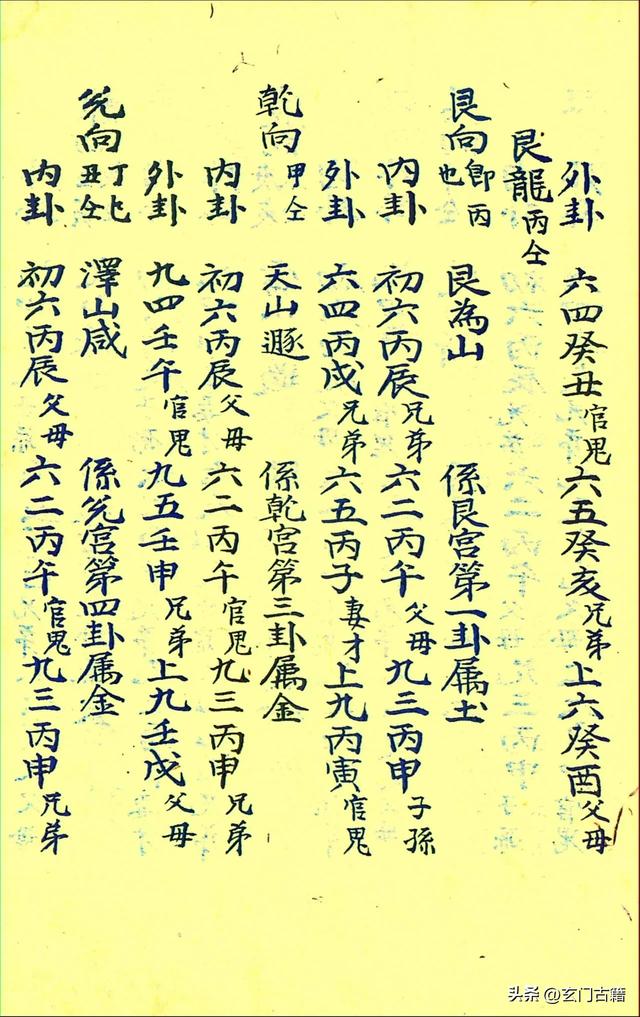 外卦 六四癸丑官鬼六五癸亥兄弟上六癸酉父母
艮龍丙仝
艮向即丙也 艮為山 係艮宫第一卦属土
内卦 初六丙辰兄弟六二丙午父母九三丙申子孫
外卦 六四丙戌兄弟六五丙子妻才上九丙寅官鬼
乾向甲仝 天山遯 係乾宫第三卦属金
内卦 初六丙辰父母六二丙午官鬼九三丙申兄弟
外卦 九四壬午官鬼九五壬申兄弟上九壬戌父母
兊向丁巳丑仝 澤山咸 係兊宫第四卦属金
内卦 初六丙辰父母六二丙午官鬼九三丙申兄弟
头条 @玄门古籍